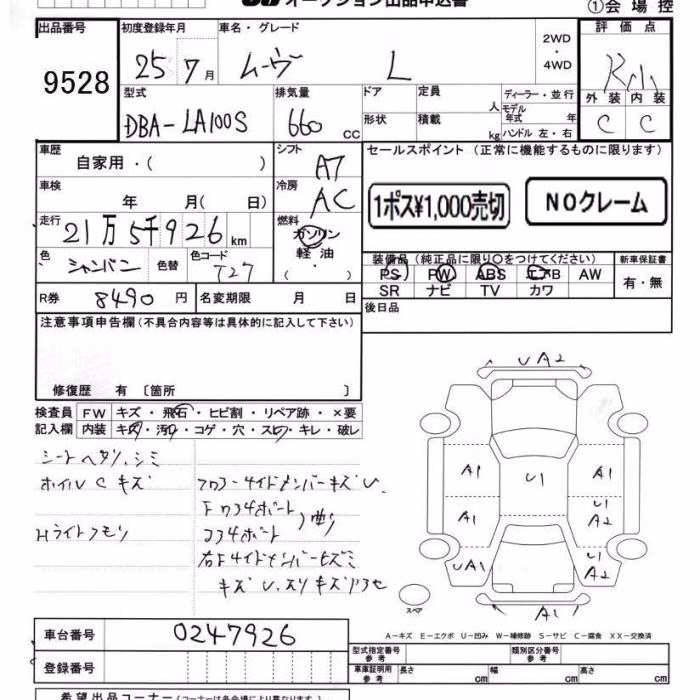 オークション出品申込書 ①会場控
出品番号 初度登録年月 車名・グレード 2WD・4WD 評価点
9528 25年7月 ムーヴ L
外装 内装
C C
型式 排気量 ドア 定員 人 ディーラー・並行
DBA-LA100S 660cc 形状 積載 kg モデル年式 年
ハンドル 左・右
車歴 自家用・( ) シフト A7 セールスポイント (正常に機能するものに限ります)
車検 年 月( 日) 冷房 AC 1ポス¥1,000売切 NOクレーム
走行 21万5千926km 燃料 ガソリン 軽油 ( ・ )
色 シャンパン 色替 色コード T27 装備品(純正品に限り○をつけてください) 新車保証書
PS PW ABS エアB AW 有・無
SR ナビ TV カワ
R券 8490円 名変期限 月 日 後日品
注意事項申告欄(不具合内容等は具体的に記入して下さい)
修復歴 有 〔箇所 〕
検査員記入欄 FW キズ・飛石・ヒビ割・リペア跡・×要
内装 キズ・汚レ・コゲ・穴・スレ・キレ・破レ
シートヘタリ、シミ
ホイルCキズ
Hライトクモリ
フロアーサイドメンバーキズU、
キズU、スリキズ
UA2
A1 U1 A1
A1 U1 A2
UA1 U1 A2
A1
スペア
A-キズ E-エクボ U-凹み W-補修跡 S-サビ C-腐食 XX-交換済
車台番号 0247926
登録番号
型式指定番号 参考 類別区分番号 参考
車庫証明用 参考 長さ cm 幅 cm 高さ cm
希望出品コーナー(コーナーは各会場により異なります。)